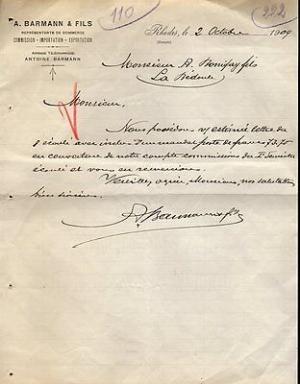 110
222
A. BARMANN & FILS
REPRÉSENTANTS DE COMMERCE
COMMISSION - IMPORTATION - EXPORTATION
ADRESSE TÉLÉGRAPHIQUE
ANTOINE BARMANN
Rhodes, le 2 Octobre 1909
Monsieur A. Bonifay fils
La Bédoule
Monsieur,
Nous possédons v/ estimée lettre du
écoulé avec inclus un mandat poste de francs 73,75
en couverture de notre compte commissions du Iº Semestre
écoulé et vous en remercions.
Veuillez agréer, Monsieur, nos salutations
bien sincères.
A. Barmann & fils